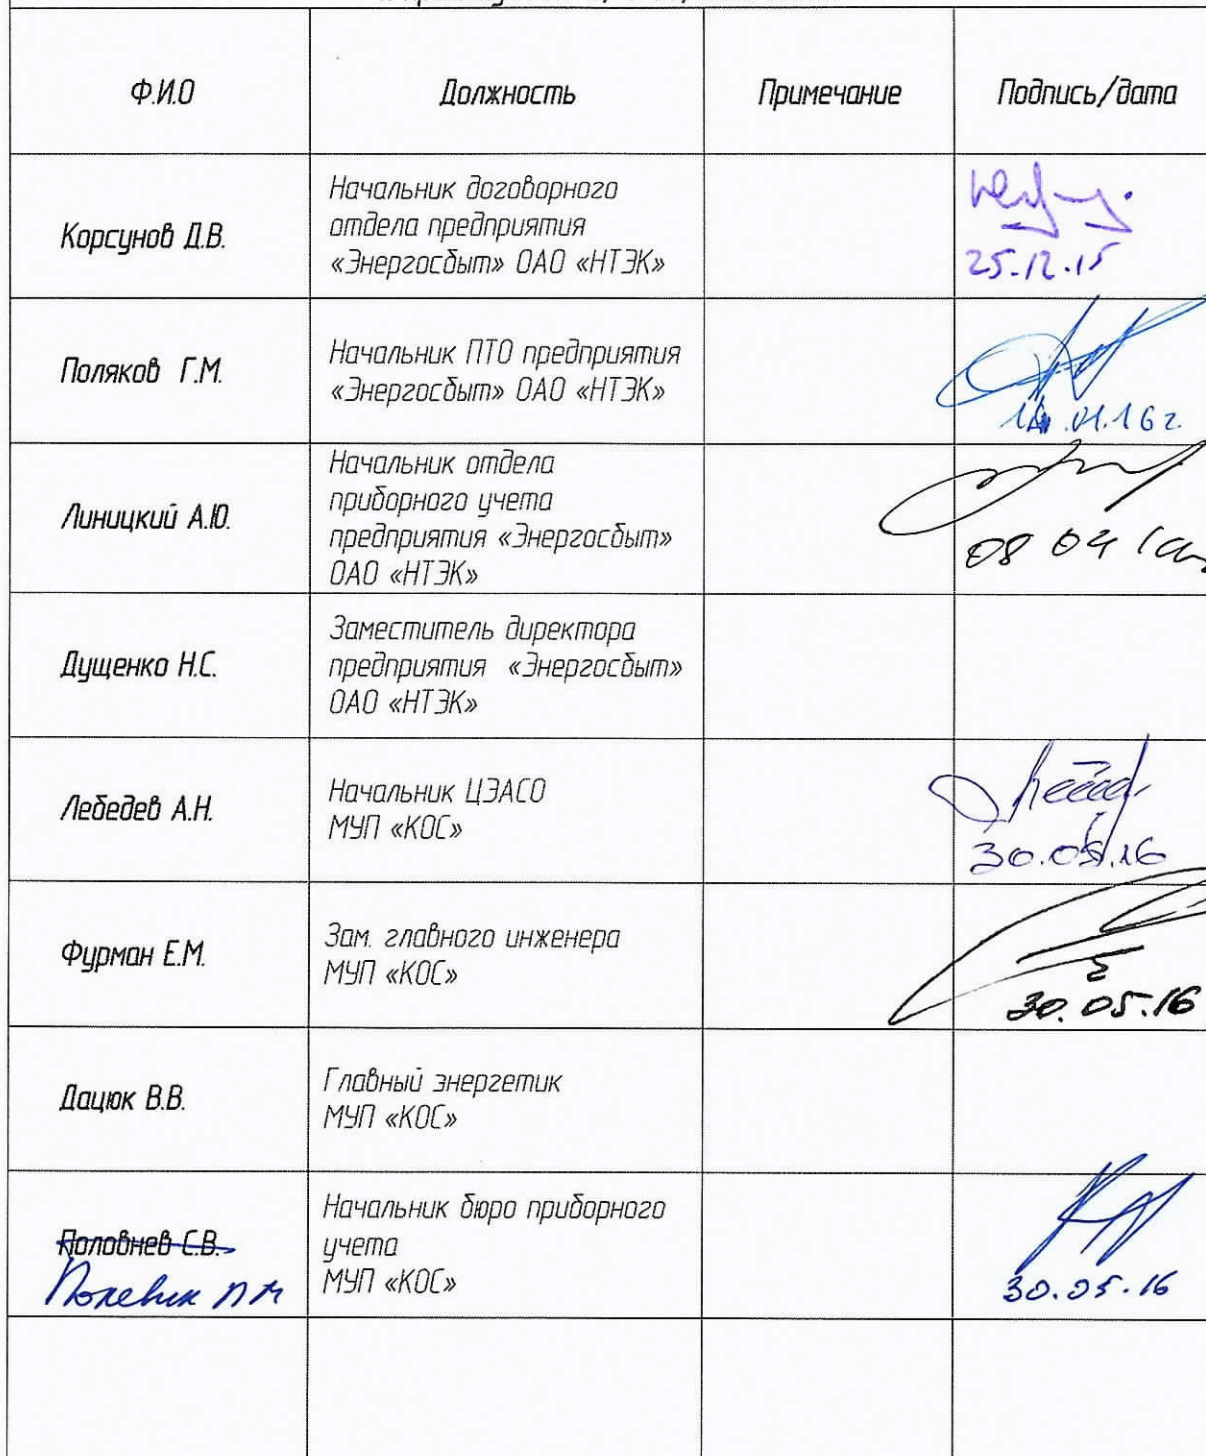 Ф.И.О
Должность
Примечание
Подпись/дата
Корсунов Д.В.
Начальник договорного
отдела предприятия
«Энергосбыт» ОАО «НТЭК»
25.12.15
Поляков Г.М.
Начальник ПТО предприятия
«Энергосбыт» ОАО «НТЭК»
.01.16г.
Линицкий А.Ю.
Начальник отдела
приборного учета
предприятия «Энергосбыт»
ОАО «НТЭК»
08 04
Дущенко Н.С.
Заместитель директора
предприятия «Энергосбыт»
ОАО «НТЭК»
Лебедев А.Н.
Начальник ЦЭАСО
МУП «КОС»
30.05.16
Фурман Е.М.
Зам. главного инженера
МУП «КОС»
30.05.16
Дацюк В.В.
Главный энергетик
МУП «КОС»
Половнев С.В.
Начальник бюро приборного
учета
МУП «КОС»
30.05.16